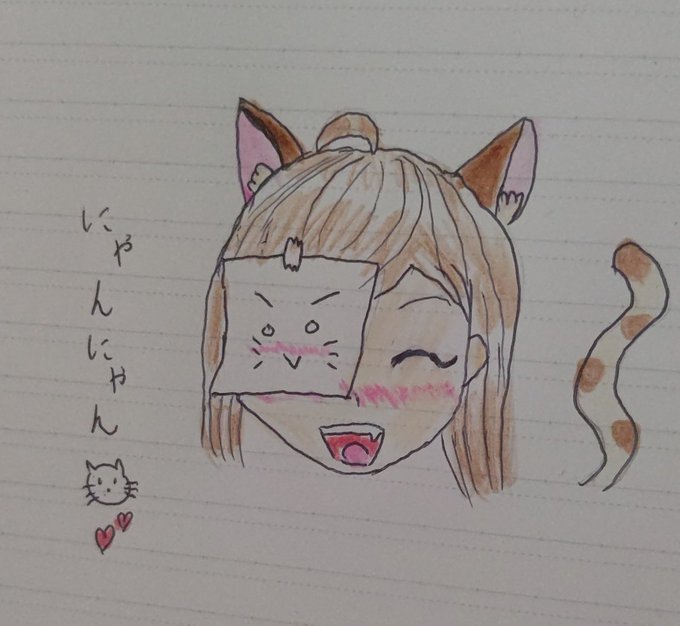 にゃんにゃん